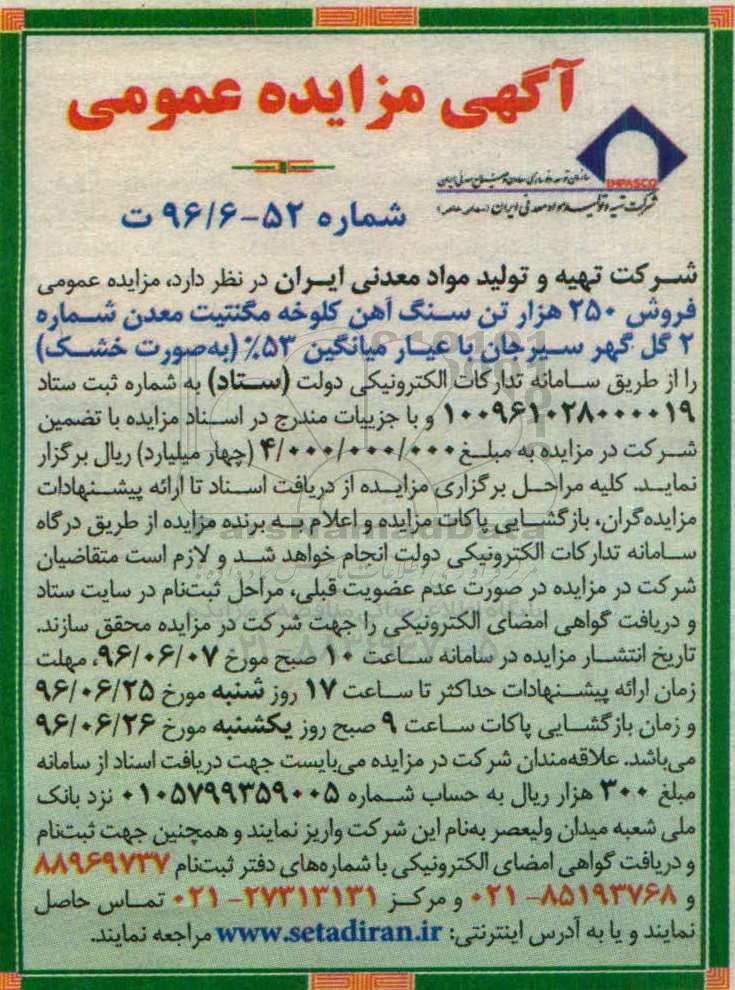 آگهی مزایده عمومی
IMPASCO
سازمان توسعه و نوسازی معادن و صنایع معدنی ایران
شرکت تهیه و تولید مواد معدنی ایران (سهامی خاص)
شماره ۵۲-۹۶/۶ ت
شرکت تهیه و تولید مواد معدنی ایران در نظر دارد، مزایده عمومی
فروش ۲۵۰ هزار تن سنگ آهن کلوخه مگنتیت معدن شماره
۲ گل گهر سیرجان با عیار میانگین ۵۳٪ (به‌صورت خشک)
را از طریق سامانه تدارکات الکترونیکی دولت (ستاد) به شماره ثبت ستاد
۱۰۰۹۶۱۰۲۸۰۰۰۰۱۹ و با جزییات مندرج در اسناد مزایده با تضمین
شرکت در مزایده به مبلغ ۴/۰۰۰/۰۰۰/۰۰۰ (چهار میلیارد) ریال برگزار
نماید. کلیه مراحل برگزاری مزایده از دریافت اسناد تا ارائه پیشنهادات
مزایده‌گران، بازگشایی پاکات مزایده و اعلام به برنده مزایده از طریق درگاه
سامانه تدارکات الکترونیکی دولت انجام خواهد شد و لازم است متقاضیان
شرکت در مزایده در صورت عدم عضویت قبلی، مراحل ثبت‌نام در سایت ستاد
و دریافت گواهی امضای الکترونیکی را جهت شرکت در مزایده محقق سازند.
تاریخ انتشار مزایده در سامانه ساعت ۱۰ صبح مورخ ۹۶/۰۶/۰۷، مهلت
زمان ارائه پیشنهادات حداکثر تا ساعت ۱۷ روز شنبه مورخ ۹۶/۰۶/۲۵
و زمان بازگشایی پاکات ساعت ۹ صبح روز یکشنبه مورخ ۹۶/۰۶/۲۶
می‌باشد. علاقه‌مندان شرکت در مزایده می‌بایست جهت دریافت اسناد از سامانه
مبلغ ۳۰۰ هزار ریال به حساب شماره ۰۱۰۵۷۹۹۳۵۹۰۰۵ نزد بانک
ملی شعبه میدان ولیعصر به‌نام این شرکت واریز نمایند و همچنین جهت ثبت‌نام
و دریافت گواهی امضای الکترونیکی با شماره‌های دفتر ثبت‌نام ۸۸۹۶۹۷۳۷
و ۸۵۱۹۳۷۶۸-۰۲۱ و مرکز ۲۷۳۱۳۱۳۱-۰۲۱ تماس حاصل
نمایند و یا به آدرس اینترنتی: www.setadiran.ir مراجعه نمایند.